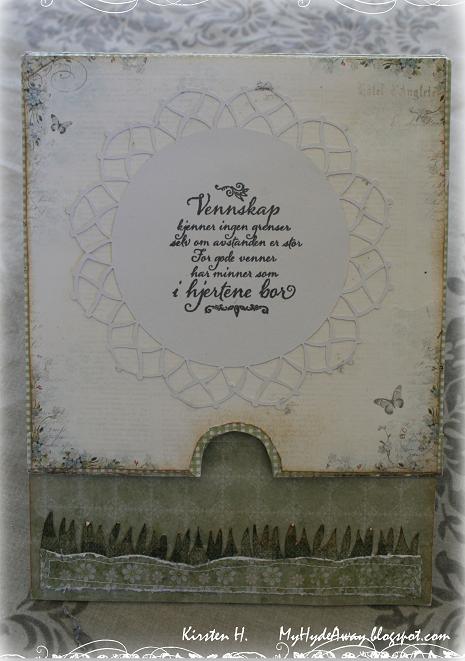 Hôtel d'Anglete
Vennskap
kjenner ingen grenser
selv om avstanden er stor
For gode venner
har minner som
i hjertene bor
Kirsten H. MyHydeAway.blogspot.com